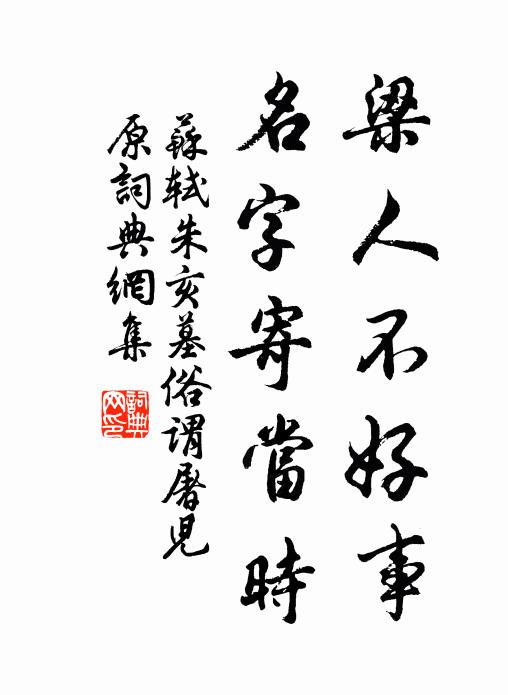 梁人不好事
名字寄當時
蘇軾朱亥墓俗謂屠兒
原詞典網集
詞典网印